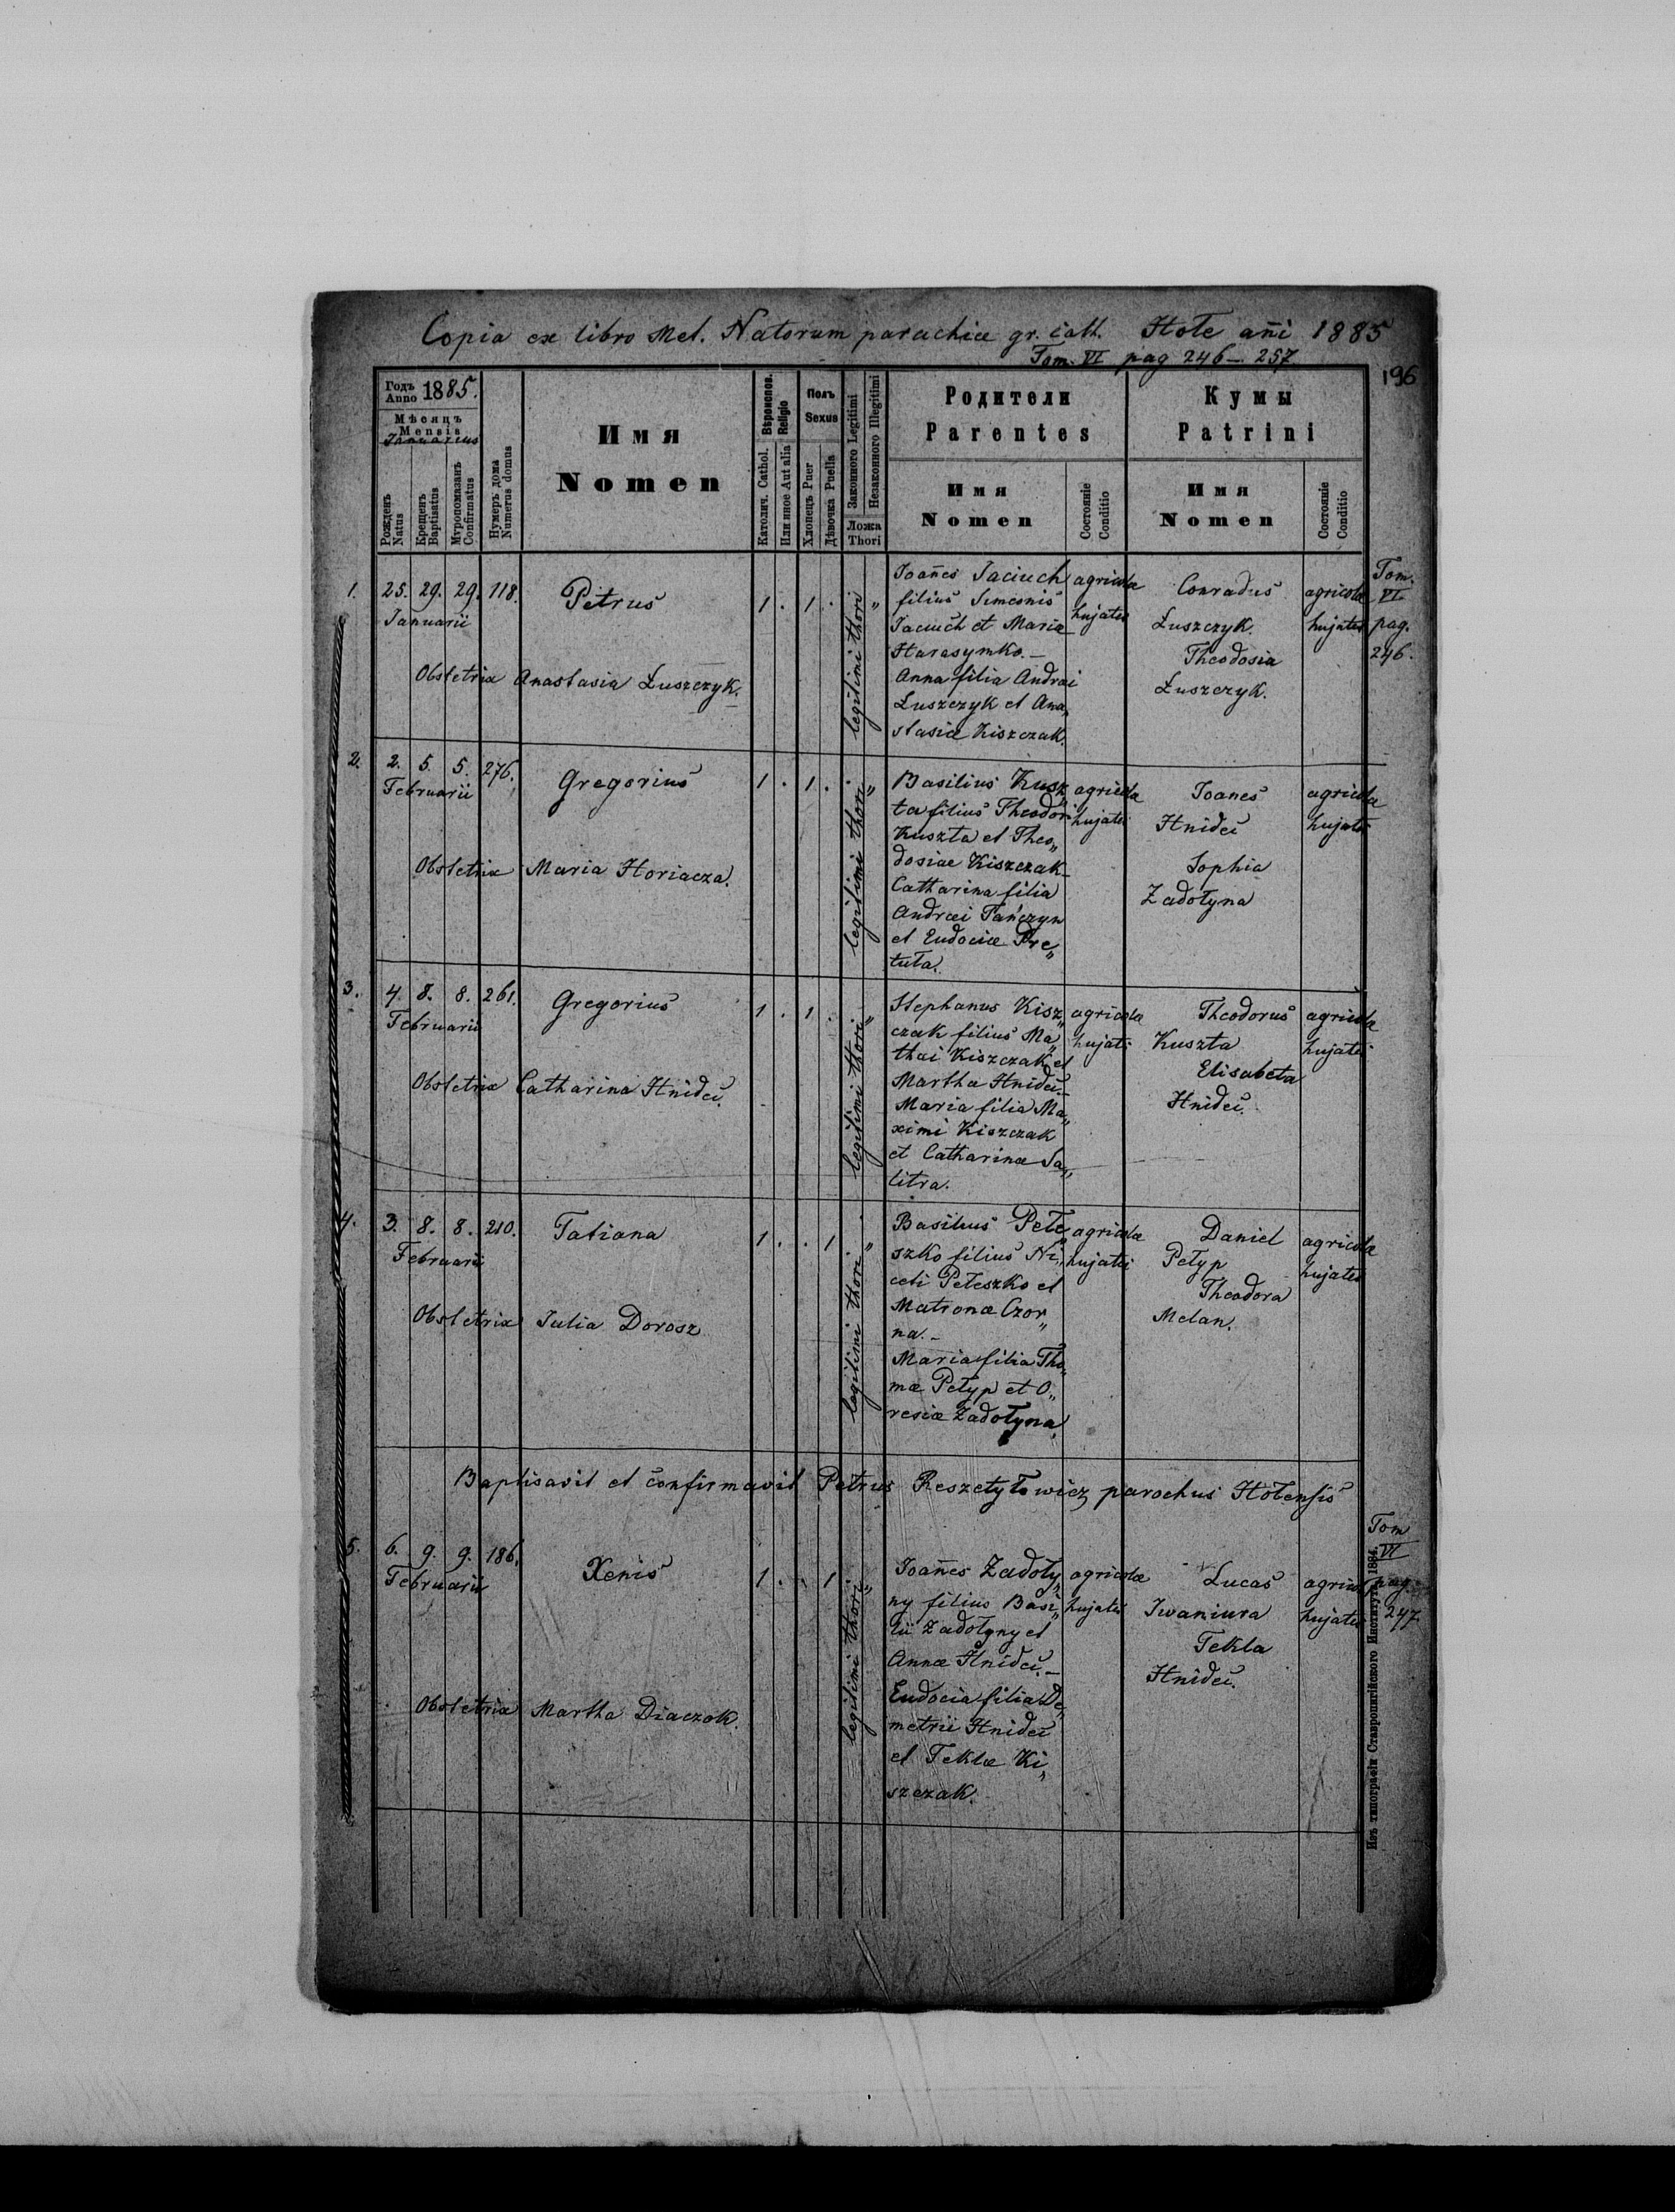 Copia ex libro Met. Natorum parachiæ gr. cath. Hole añi 1885
Tom. VI pag 246 – 257.
196
Годъ
Anno 1885.
Мѣсяцъ
Mensis
Januarius
Рожденъ
Natus
Крещенъ
Baptisatus
Муропомазанъ
Confirmatus
Нумеръ дома
Numerus domus
Имя
Nomen
Вѣроисповѣд.
Religio
Католич. Cathol.
Или иное Aut alia
Полъ
Sexus
Хлопецъ Puer
Дѣвочка Puella
Законного Legitimi
Незаконного Illegitimi
Ложа
Thori
Родители
Parentes
Имя
Nomen
Состояніе
Conditio
Кумы
Patrini
Имя
Nomen
Состояніе
Conditio
1. 25. 29. 29. 118. Petrus 1 . 1 .
Januarii
Obstetrix Anastasia Łuszczyk.
legitimi thori "
Joañes Jaciuch
filius Simeonis
Jaciuch et Mariæ
Harasymko. –
Anna filia Andræi
Łuszczyk et Ana„
stasiæ Kiszczak.
agricolæ
hujates
Conradus
Łuszczyk.
Theodosia
Łuszczyk.
agricolæ
hujates
Tom.
VI.
pag.
246.
2. 2. 5. 5. 276. Gregorius 1 . 1 .
Februarii
Obstetrix Maria Horiacza.
legitimi thori "
Basilius Kusz„
ta filius Theodori
Kuszta et Theo„
dosiae Kiszczak –
Catharina filia
Andræi Tańczyn
et Eudociæ Pre„
tuła.
agricolæ
hujates
Joanes
Hnideć
Sophia
Zadołyna
agricolæ
hujates
3. 4. 8. 8. 261. Gregorius 1 . 1 .
Februarii
Obstetrix Catharina Hnideć.
legitimi thori "
Stephanus Kisz„
czak filius Ma„
thæi Kiszczak et
Martha Hnideć. –
Maria filia Ma„
ximi Kiszczak
et Catharinæ Sa„
litra.
agricolæ
hujates
Theodorus
Kuszta
Elisabeta
Hnideć.
agricolæ
hujates
4. 3. 8. 8. 210. Tatiana 1 . . 1
Februarii
Obstetrix Julia Dorosz
legitimi thori "
Basilius Pete„
szko filius Ni„
ceti Peteszko et
Matronæ Czor„
na. –
Maria filia Tho„
mæ Petyp et O„
resiæ Zadołyna.
agricolæ
hujates
Daniel
Petyp
Theodora
Melan.
agricolæ
hujates
Baptisavit et confirmavit Petrus Reszetyłowicz parochus Hołensis
5. 6. 9. 9. 186. Xenis 1 . . 1
Februarii
Obstetrix Martha Diaczok.
legitimi thori "
Joañes Zadoły„
ny filius Basi„
lii Zadołyny et
Annæ Hnideć. –
Eudocia filia De„
metrii Hnideć
et Teklæ Ki„
szczak.
agricolæ
hujates
Lucas
Iwaniura
Tekla
Hnideć.
agricolæ
hujates
Tom
VI
pag.
247
Изъ типографіи Ставропигійского Института 1884.